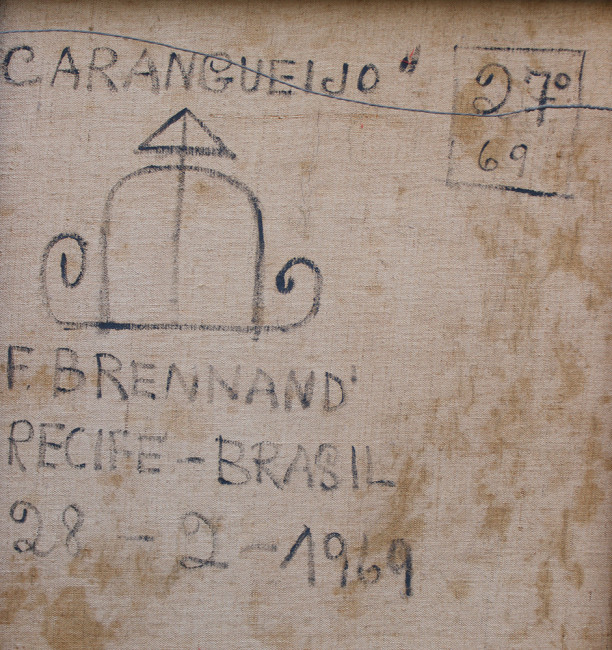 CARANGUEIJO"
27º
69
F. BRENNAND'
RECIFE - BRASIL
28 - 2 - 1969